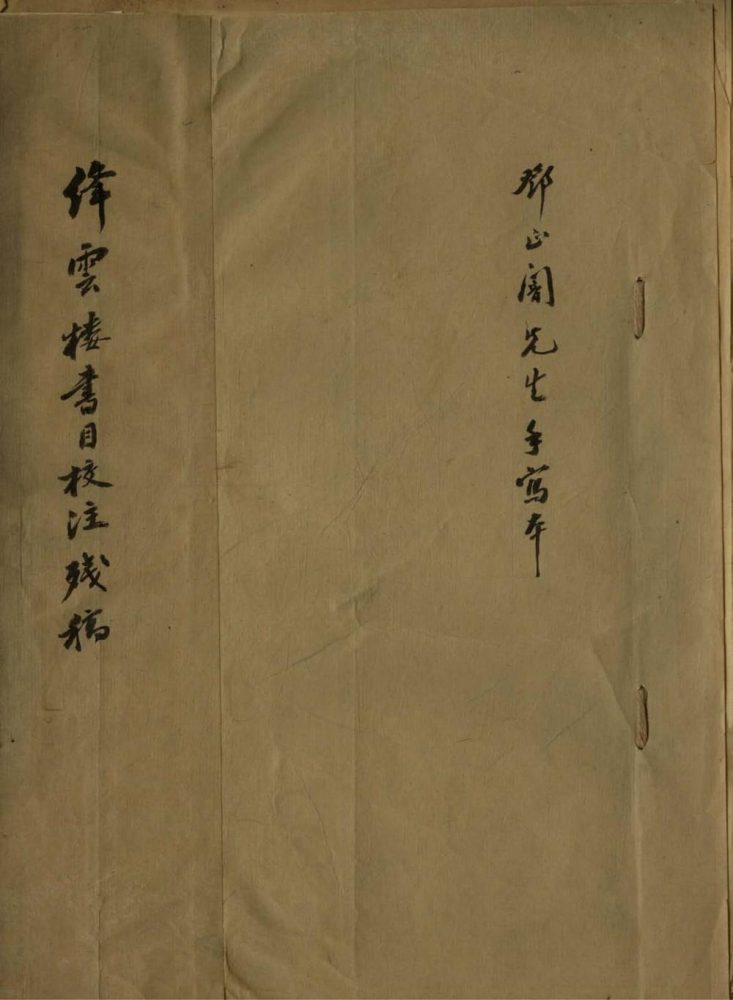 鄧正闇先生手寫本
絳雲楼書目校注殘稿